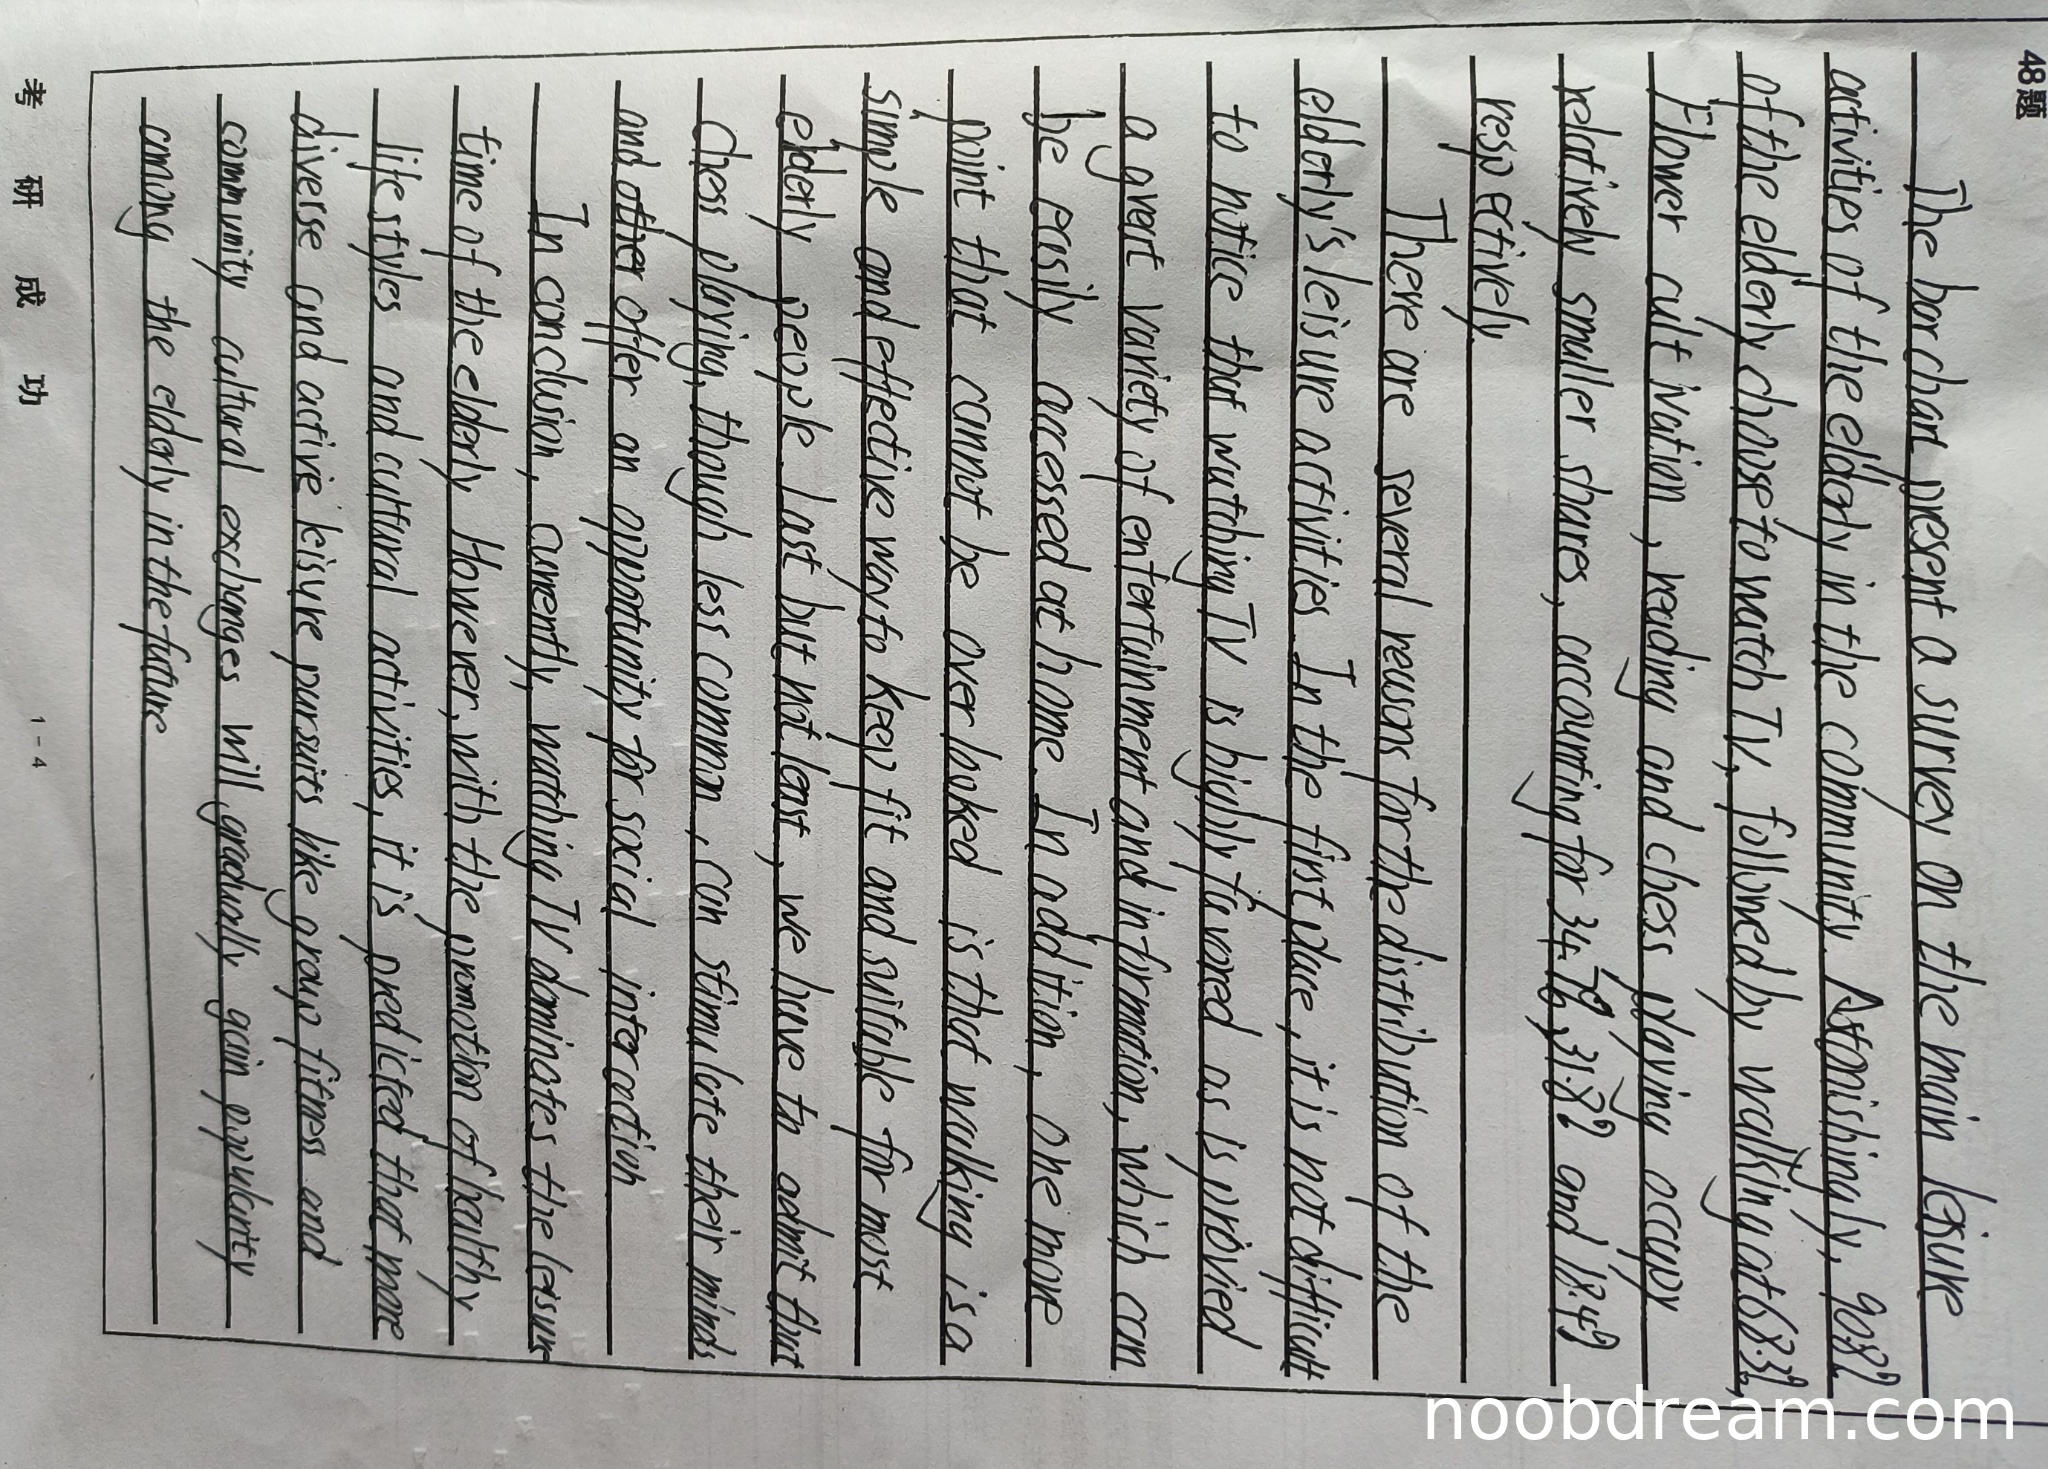 48题
The bar chart present a survey on the main leisure
activities of the elderly in the community. Astonishingly, 90.8%
of the elderly choose to watch TV, followed by walking at 68.3%,
Flower cultivation, reading and chess playing occupy
relatively smaller shares, accounting for 34.7%, 31.8% and 18.4%
respectively.
There are several reasons for the distribution of the
elderly's leisure activities. In the first place, it is not difficult
to notice that watching TV is highly favored as is provied
a great variety of entertainment and information, which can
be easily accessed at home. In addition, one more
point that cannot be overlooked is that walking is a
simple and effective way to keep fit and suitable for most
elderly people. Last but not least, we have to admit that
Chess playing, though less common, can stimulate their minds
and other offer an opportunity for social interaction
In conclusion, currently, watching TV dominates the leisure
time of the elderly. However, with the promotion of healthy
lifestyles and cultural activities, it is predicted that more
diverse and active leisure pursuits like group fitness and
community cultural exchanges will gradually gain popularity
among the elderly in the future
考 研 成 功
1-4
noobdream.com